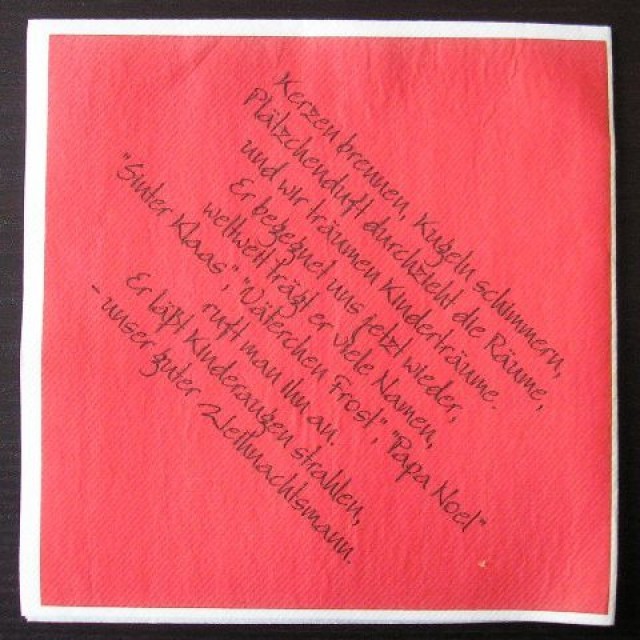 Kerzen brennen, Kugeln schimmern,
Plätzchenduft durchzieht die Räume,
und wir träumen Kinderträume.
Er begegnet uns jetzt wieder,
weltweit trägt er viele Namen,
"Sinter Klaas", "Väterchen Frost", "Papa Noel"
ruft man ihn an.
Er läßt Kinderaugen strahlen,
- unser guter Weihnachtsmann.